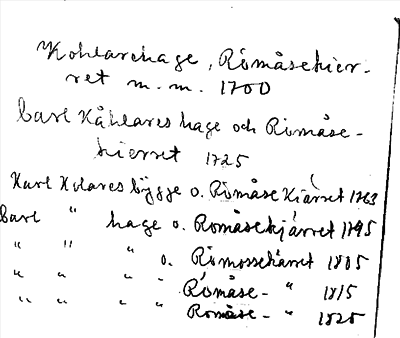 Kohlarehage, Romåsekier-
ret m. m. 1700
Carl Kåhlares hage och Romåse-
kierret 1725
Karl Kolares bygge o. Romåse Kiärret 1763
Carl " hage o. Romåsekjärret 1795
" " " o. Romossekärret 1805
" " " " Romåse- " 1815
" " " " Romåse- " 1825